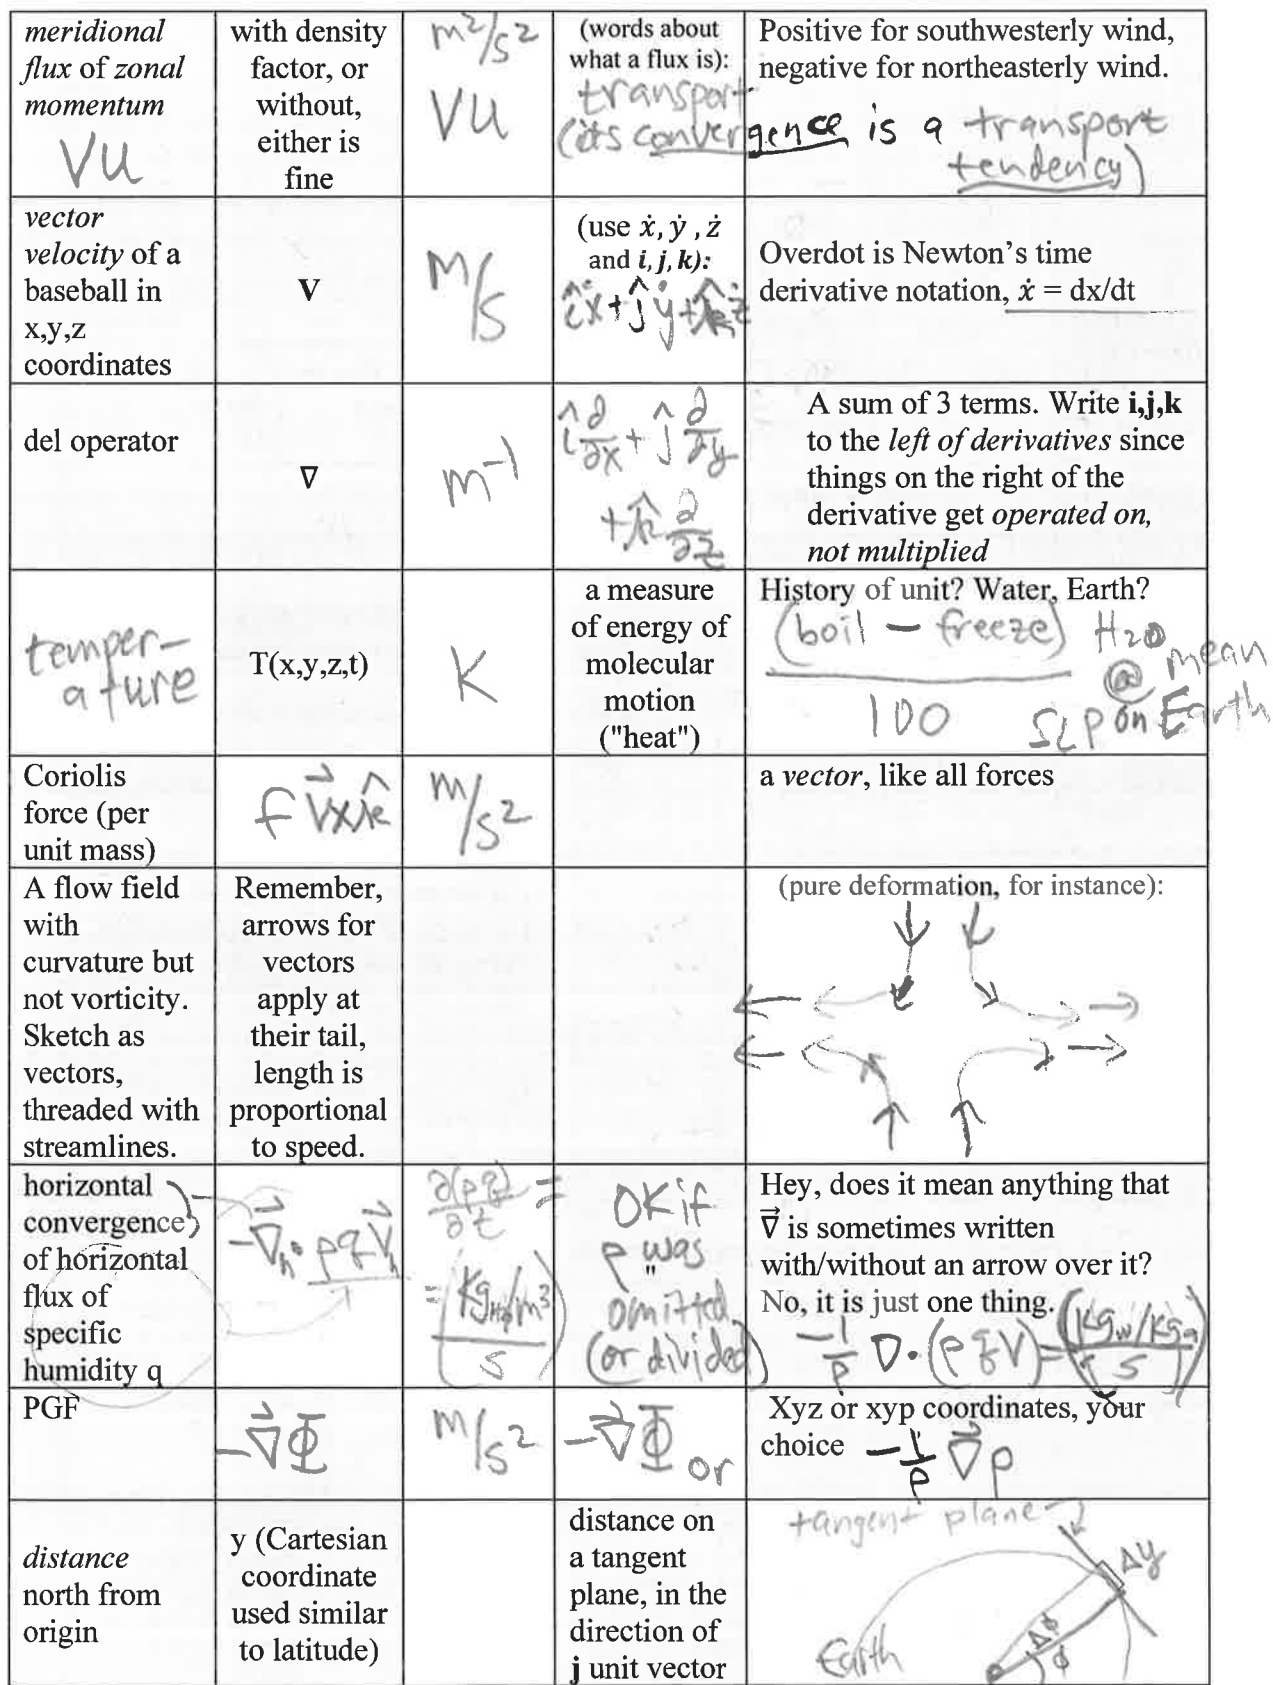 meridional
flux of zonal
momentum
vu
with density
factor, or
without,
either is
fine
m²/s²
vu
(words about
what a flux is):
transport
(its convergence is a transport
tendency)
Positive for southwesterly wind,
negative for northeasterly wind.
vector
velocity of a
baseball in
x,y,z
coordinates
V
m/s
(use ẋ, ẏ , ż
and i, j, k):
îẋ + ĵẏ + k̂ż
Overdot is Newton's time
derivative notation, ẋ = dx/dt
del operator
∇
m⁻¹
î ∂/∂x + ĵ ∂/∂y
+ k̂ ∂/∂z
A sum of 3 terms. Write i,j,k
to the left of derivatives since
things on the right of the
derivative get operated on,
not multiplied
temper-
ature
T(x,y,z,t)
K
a measure
of energy of
molecular
motion
("heat")
History of unit? Water, Earth?
(boil – freeze)
100
H₂O
@ mean
SLP on Earth
Coriolis
force (per
unit mass)
f V⃗ x k̂
m/s²
a vector, like all forces
A flow field
with
curvature but
not vorticity.
Sketch as
vectors,
threaded with
streamlines.
Remember,
arrows for
vectors
apply at
their tail,
length is
proportional
to speed.
(pure deformation, for instance):
horizontal
convergence
of horizontal
flux of
specific
humidity q
-∇⃗ₕ • ρqV⃗ₕ
∂(ρq)/∂t =
= (kg H₂O/m³ / s)
OK if
ρ was
omitted
(or divided)
Hey, does it mean anything that
∇⃗ is sometimes written
with/without an arrow over it?
No, it is just one thing.
-1/ρ ∇•(ρqV) = (kg_w/kg_a / s)
PGF
-∇⃗Φ
m/s²
-∇⃗Φ or
Xyz or xyp coordinates, your
choice -1/ρ ∇⃗p
distance
north from
origin
y (Cartesian
coordinate
used similar
to latitude)
distance on
a tangent
plane, in the
direction of
j unit vector
tangent plane
Δy
Δϕ
ϕ
Earth